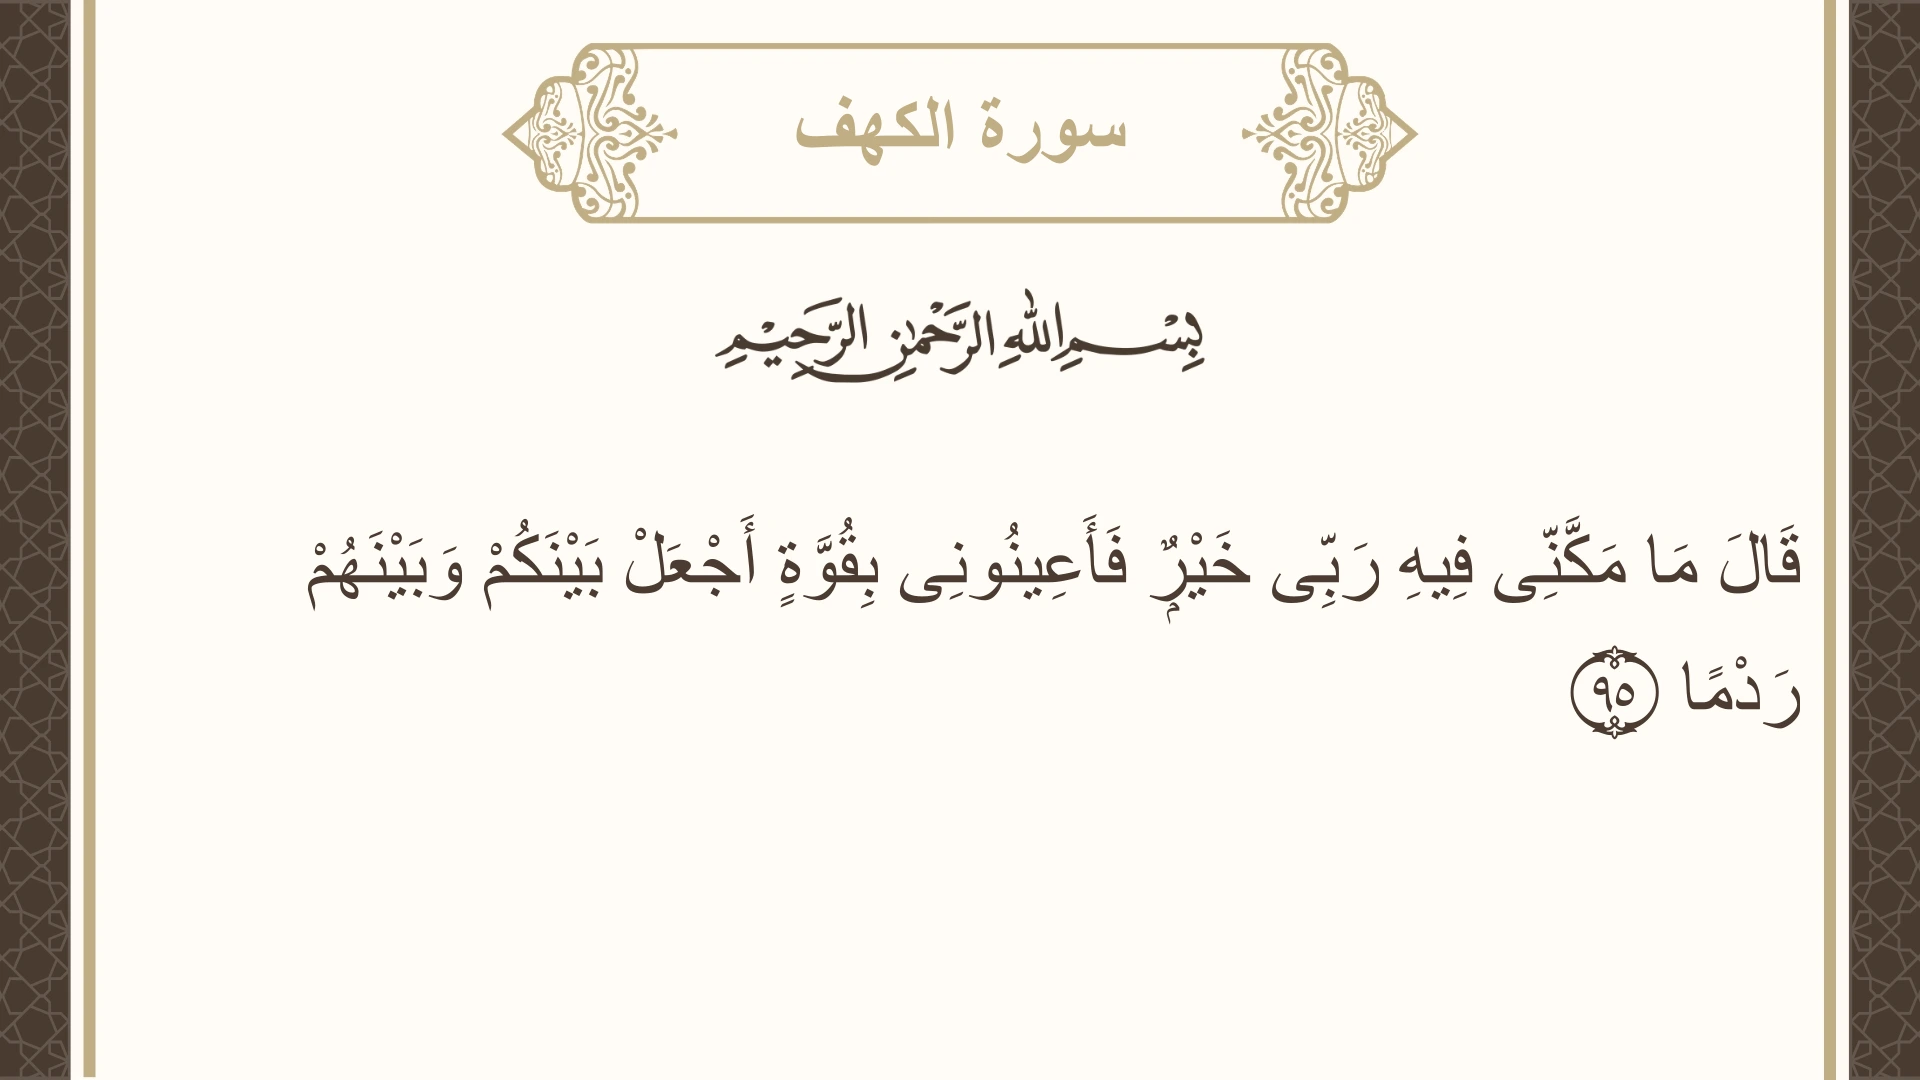 سورة الكهف
بِسْمِ اللهِ الرَّحْمٰنِ الرَّحِيْمِ
قَالَ مَا مَكَّنِّى فِيهِ رَبِّى خَيْرٌۭ فَأَعِينُونِى بِقُوَّةٍ أَجْعَلْ بَيْنَكُمْ وَبَيْنَهُمْ
رَدْمًا ٩٥